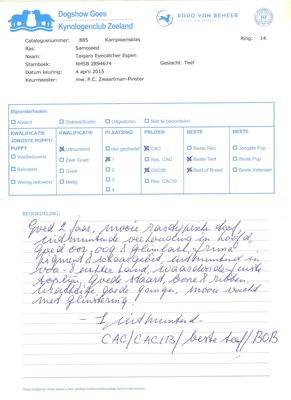 Dogshow Goes
Kynologenclub Zeeland
RAAD VAN BEHEER
Catalogusnummer: 885 Kampioensklas
Ring: 14
Ras: Samojeed
Naam: Taigaro Eyecatcher Espen
Stamboek: NHSB 2894674
Geslacht: Teef
Datum keuring: 4 april 2015
Keurmeester: mw. P.C. Zwaartman-Pinster
Bijzonderheden:
Absent Diskwalificatie Uitgesloten Niet te beoordelen
KWALIFICATIE JONGSTE PUPPY/ PUPPY
Veelbelovend
Belovend
Weinig belovend
KWALIFICATIE
Uitmuntend
Zeer Goed
Goed
Matig
PLAATSING
niet geplaatst
1
2
3
4
PRIJZEN
CAC
Res. CAC
CACIB
Res. CACIB
BESTE
Beste Reu
Beste Teef
Best of Breed
BESTE
Jongste Pup
Beste Pup
Beste Veteraan
BEOORDELING:
Goed 2 jaar, mooie rastypische teef,
uitmuntende verhouding in hoofd,
goed oor, oog & glimlach, prima
pigment & schaargebit, uitmuntend in
voor- & achterhand, juiste
topline, goede staart, bone & ribben,
goede gangen, mooie vacht
met glinstering!
- 1 uitmuntend -
CAC/CACIB/beste teef/BOB